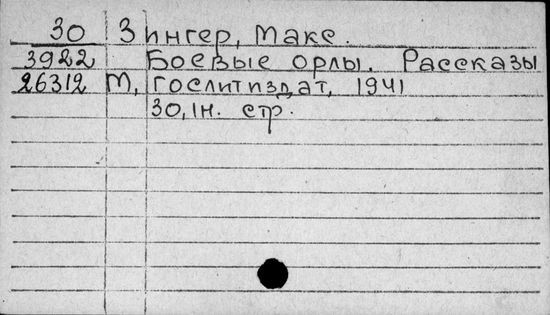 30 Зингер, Макс.
3922 Боевые орлы. Рассказы
26312 М, Гослитиздат, 1941
30, 1н. стр.